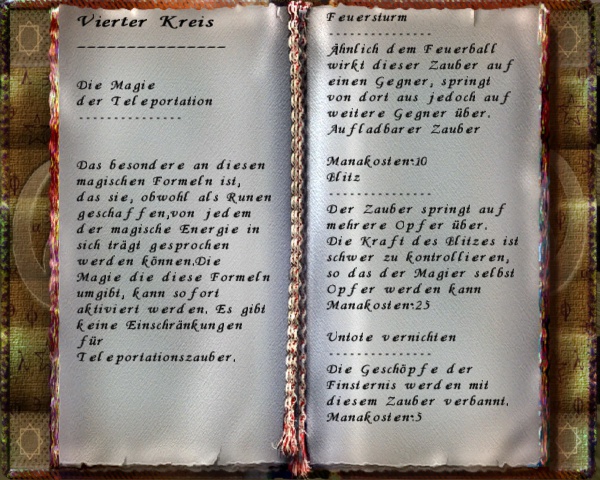 Vierter Kreis
---------------
Die Magie
der Teleportation
---------------
Das besondere an diesen
magischen Formeln ist,
das sie, obwohl als Runen
geschaffen,von jedem
der magische Energie in
sich trägt gesprochen
werden können.Die
Magie die diese Formeln
umgibt, kann sofort
aktiviert werden. Es gibt
keine Einschränkungen
für
Teleportationszauber.
Feuersturm
---------------
Ähnlich dem Feuerball
wirkt dieser Zauber auf
einen Gegner, springt
von dort aus jedoch auf
weitere Gegner über.
Aufladbarer Zauber
Manakosten:10
Blitz
---------------
Der Zauber springt auf
mehrere Opfer über.
Die Kraft des Blitzes ist
schwer zu kontrollieren,
so das der Magier selbst
Opfer werden kann
Manakosten:25
Untote vernichten
---------------
Die Geschöpfe der
Finsternis werden mit
diesem Zauber verbannt.
Manakosten:5